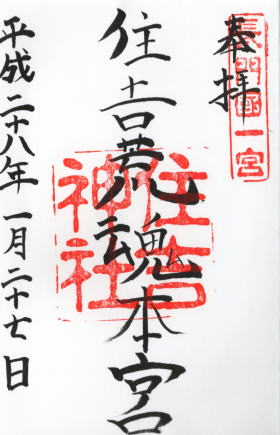 長門國一宮
奉拝
住吉荒魂本宮
住吉神社
平成二十八年一月二十七日